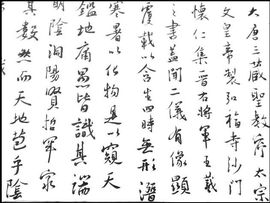 大唐三藏聖教序太宗
文皇帝製弘福寺沙門
懷仁集晉右將軍王羲
之書蓋聞二儀有像顯
覆載以含生四時無形潛
寒暑以化物是以窺天
鑑地庸愚皆識其端
明陰洞陽賢哲罕窮
其數然而天地苞乎陰